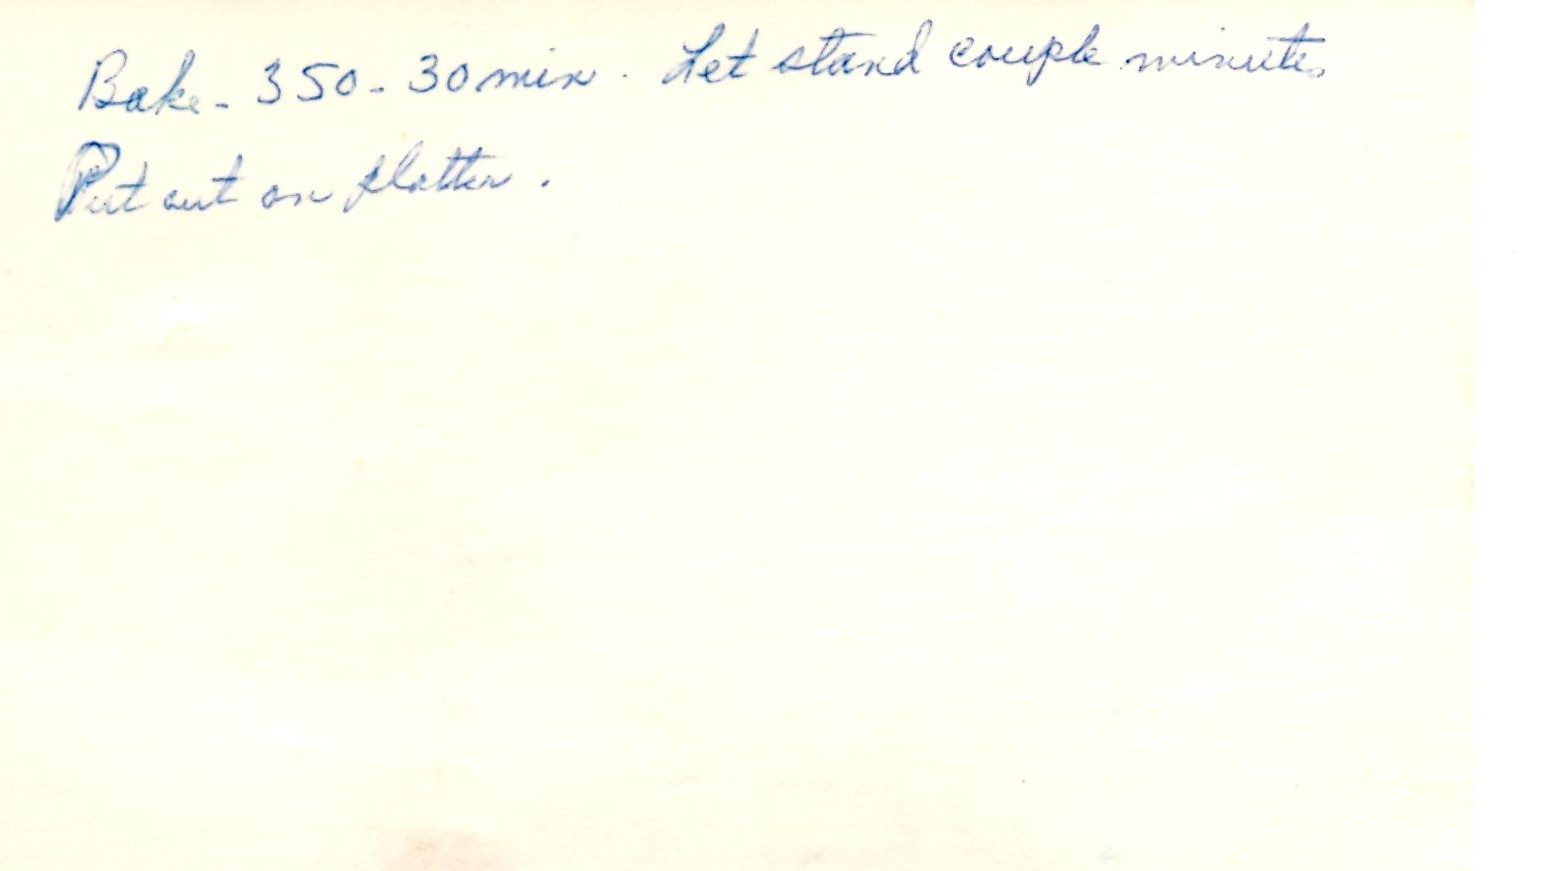 Bake - 350 - 30 min. Let stand couple minutes
Put out on platter.